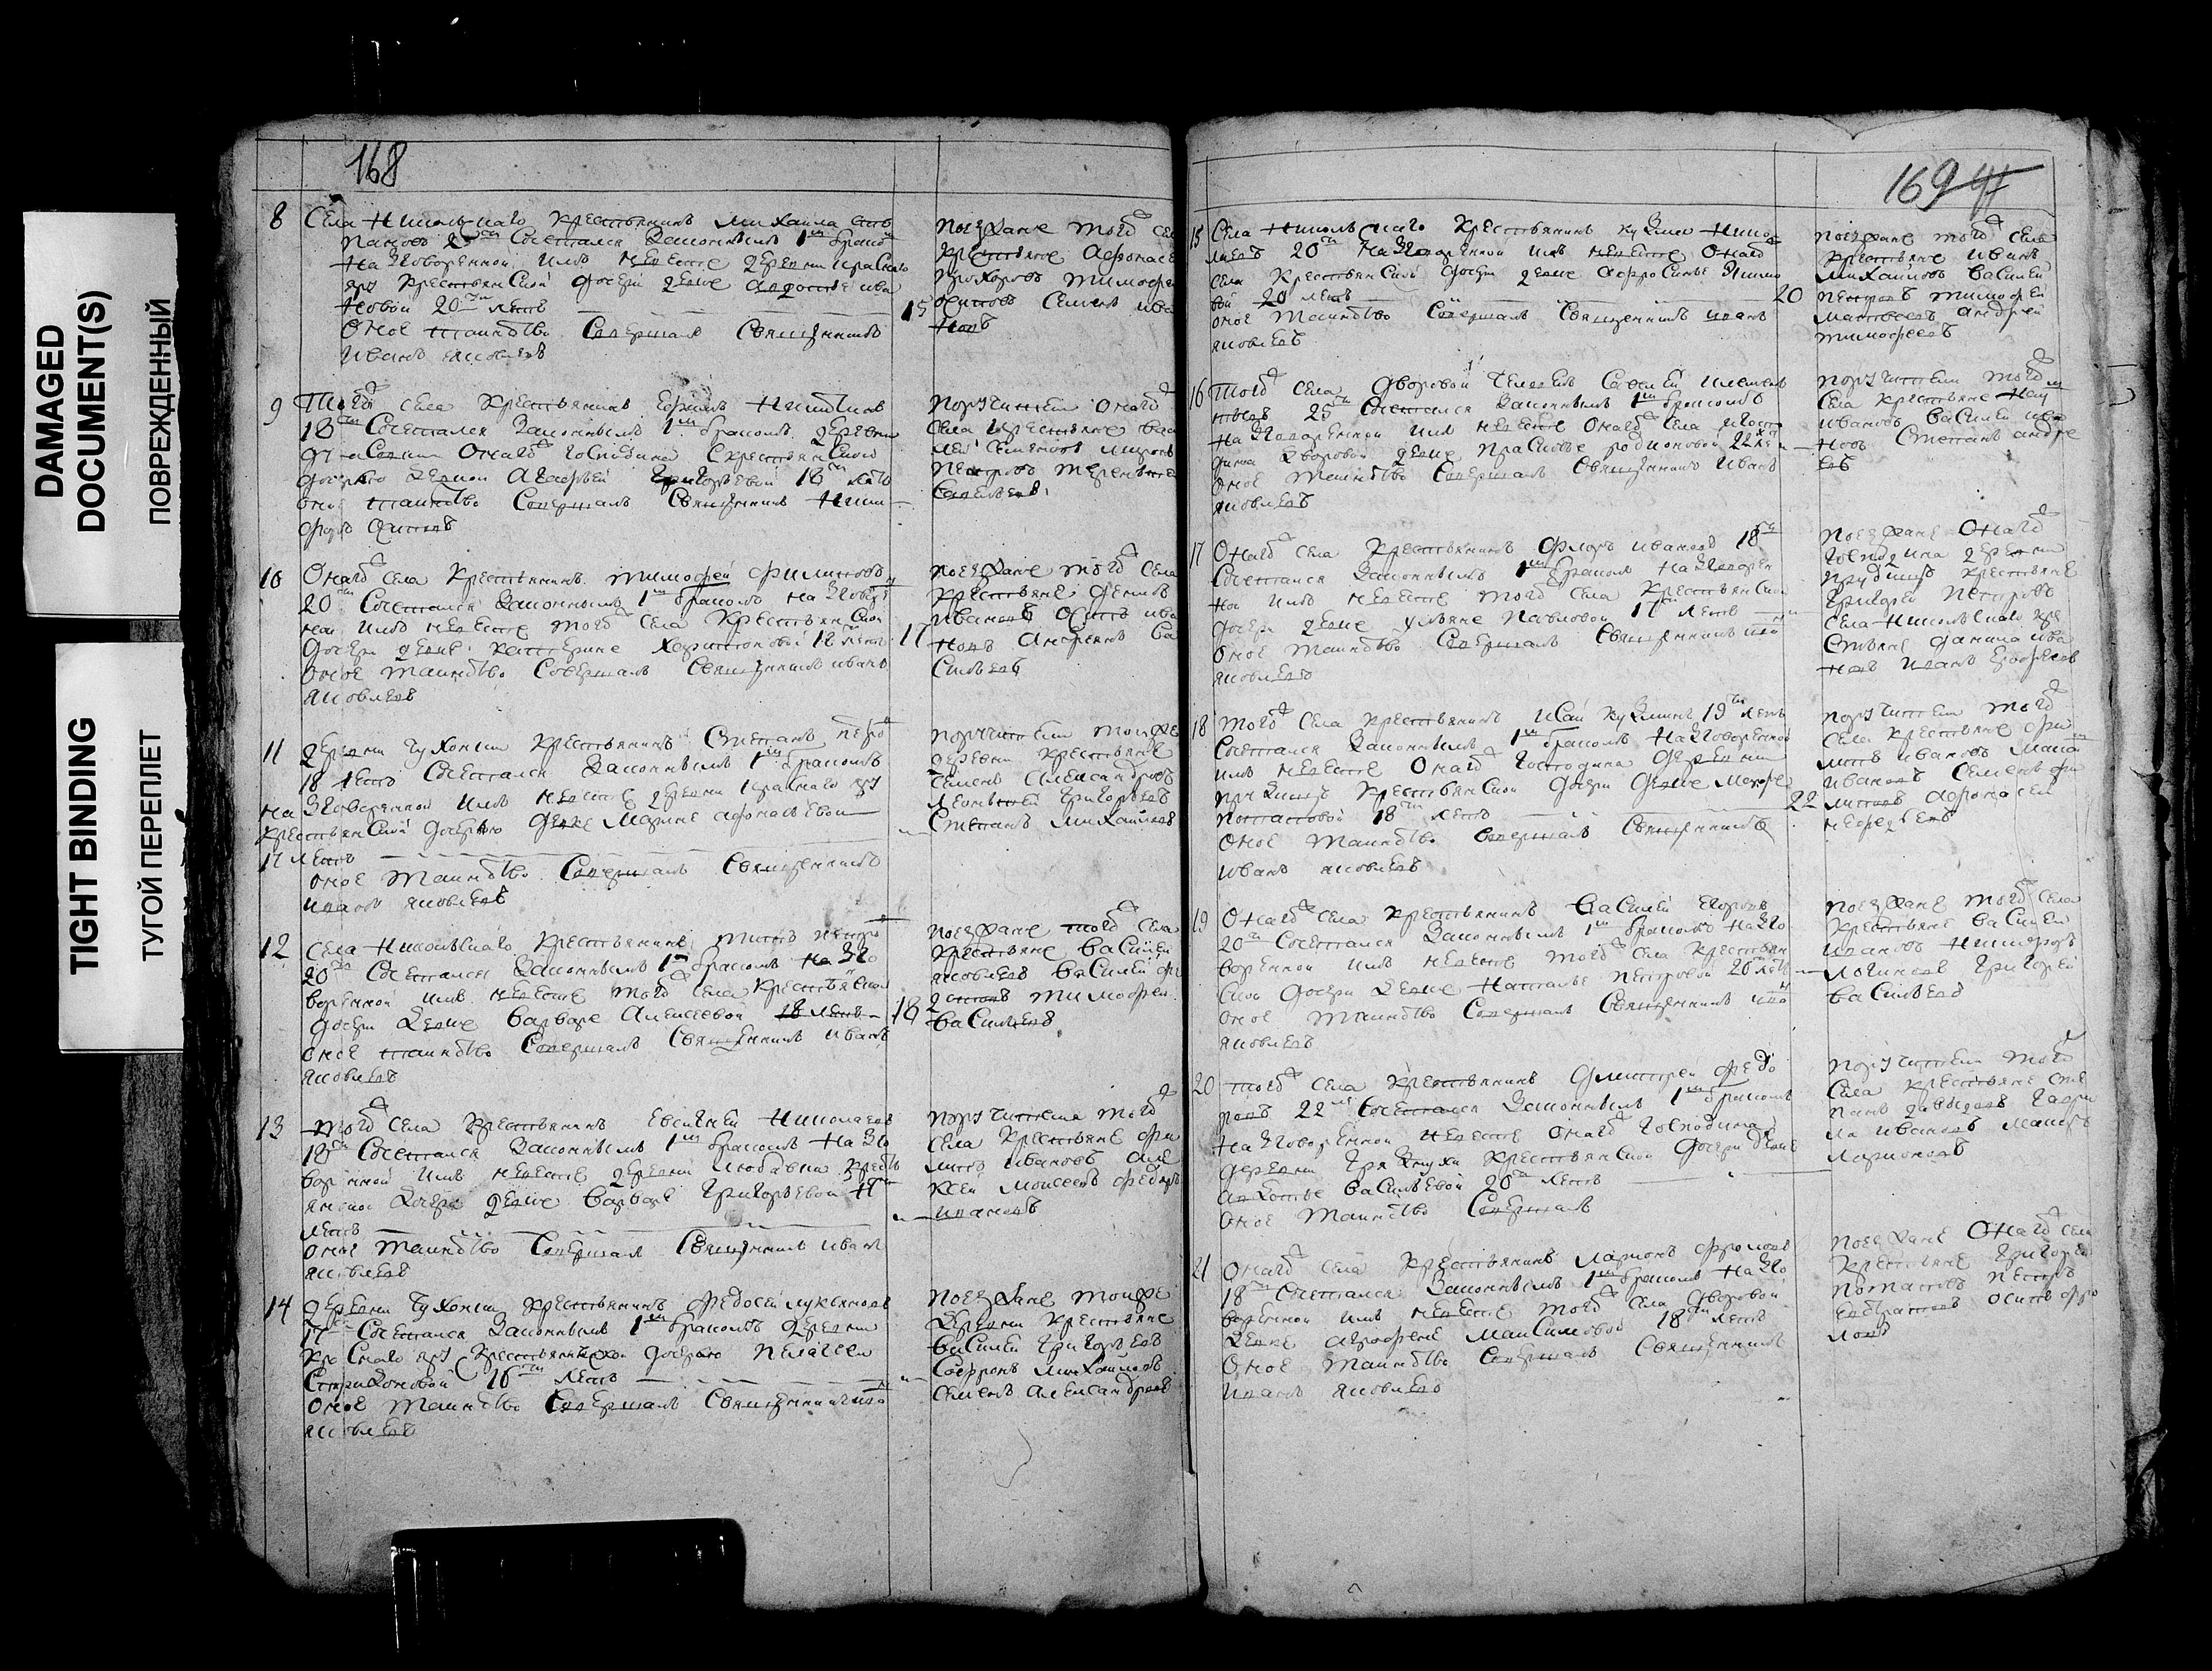 DAMAGED
DOCUMENT(S)
ПОВРЕЖДЕННЫЙ
TIGHT BINDING
ТУГОЙ ПЕРЕПЛЕТ
168
8 Села Никольскаго крестьянинъ Михайла
Сочетался законнымъ 1м бракомъ
на зговоренной имъ невесте деревни Краснаго
яру крестьянской дочери девке Авдотье Ива
новой 20ти летъ
оное таинство совершалъ священникъ
Иванъ Яковлевъ
поезжане тогожъ
крестьяне Афонасе
Прохоровъ Тимофе
Осиповъ Семенъ Ива
новъ
15
9 Тогожъ села крестьянинъ Ефимъ Никитинъ
18ти сочетался законнымъ 1м бракомъ деревни
оногожъ господина крестьянской
дочерью девкой Агафьей Григорьевой 18ти летъ
оное таинство совершалъ священникъ Ники
форъ Осиповъ
поручители оногожъ
села крестьяне Васи
лей Семеновъ Миронъ
Петровъ Терентей
Савельевъ
10 Оногожъ села крестьянинъ Тимофей Филиповъ
20ти сочетался законнымъ 1м бракомъ на зговор
ной имъ невесте тогожъ села крестьянской
дочери девке Катерине Харитоновой 18 летъ
оное таинство совершалъ священникъ Иванъ
Яковлевъ
поезжане тогожъ села
крестьяне
Ивановъ Осипъ Ива
новъ Андреянъ Ва
сильевъ
17
11 Деревни Чухонки крестьянинъ Степанъ Петро
18 летъ сочетался законнымъ 1м бракомъ
на зговоренной имъ невесте деревни Краснаго яру
крестьянской дочерью девке Марине Афонасьевой
17 летъ
оное таинство совершалъ священникъ
Иванъ Яковлевъ
поручители тоижъ
деревни крестьяне
Семенъ Александровъ
Леонтей Григорьевъ
Степанъ Михайловъ
12 Села Никольскаго крестьянинъ Титъ Петро
20ти сочетался законнымъ 1м бракомъ на зго
воренной имъ невесте тогожъ села крестьянской
дочери девке Варваре Алексеевой 18 летъ
оное таинство совершалъ священникъ Иванъ
Яковлевъ
поезжане тогожъ села
крестьяне Василей
Яковлевъ Василей Фи
Тимофей
Васильевъ
18
13 Тогожъ села крестьянинъ Евсигней Николаевъ
18ти сочетался законнымъ 1м бракомъ на зго
воренной имъ невесте деревни Любавки кресть
янской дочери девке Варваре Григорьевой
летъ
оное таинство совершалъ священникъ Иванъ
Яковлевъ
поручители тогожъ
села крестьяне Фи
липъ Ивановъ Але
ксей Моисеевъ Федоръ
Ивановъ
14 деревни Чухонки крестьянинъ Федосей Лукьяновъ
17ти сочетался законнымъ 1м бракомъ деревни
Краснаго яру крестьянской дочерью Пелагеей
Спиридоновой 16ти летъ
оное таинство совершалъ священникъ Ива
Яковлевъ
поезжане тоижъ
деревни крестьяне
Василей Григорьевъ
Софронъ Михайловъ
Семенъ Александровъ
169
15 Села Никольскаго крестьянинъ Кузма Нико
лаевъ 20ти на зговоренной имъ невесте оногожъ
села крестьянской дочери девке Афросинье Яким
вой 20 летъ
оное таинство совершалъ священникъ Иванъ
Яковлевъ
20
поезжане тогожъ села
крестьяне Иванъ
Михайловъ Василей
Петровъ Тимофей
Матвеевъ Андрей
Тимофеевъ
16 Тогожъ села дворовой человекъ Савелей
25ти сочетался законнымъ 1м бракомъ
на зговоренной имъ невесте оногожъ села госпо
дина дворовой девке Прасковье Родионовой 22 ле
оное таинство совершалъ священникъ Иванъ
Яковлевъ
поручители тогожъ
села крестьяне
Ивановъ Василей Ива
новъ Степанъ Андре
евъ
17 Оногожъ села крестьянинъ Флоръ Ивановъ 18ти
сочетался законнымъ 1м бракомъ на зговорен
ной имъ невесте тогожъ села крестьянской
дочери девке Ульяне Павловой 17ти летъ
оное таинство совершалъ священникъ Ива
Яковлевъ
поезжане оногожъ
господина деревни
крестьяне
Григорей Петровъ
села Никольскаго кре
стьяне Данила Ива
новъ Иванъ Ерофеевъ
18 Тогожъ села крестьянинъ Исай Кузминъ 19ти летъ
сочетался законнымъ 1м бракомъ на зговоренной
имъ невесте оногожъ господина деревни
крестьянской дочери девке Марфе
Потаповой 18ти летъ
оное таинство совершалъ священникъ
Иванъ Яковлевъ
22
поручители тогожъ
села крестьяне Фи
липъ Ивановъ
Ивановъ Семенъ Фи
липовъ Афонасей
19 Оногожъ села крестьянинъ Василей Егоровъ
20ти сочетался законнымъ 1м бракомъ на зго
воренной имъ невесте тогожъ села крестьян
ской дочери девке Наталье Петровой 20ти летъ
оное таинство совершалъ священникъ Ива
Яковлевъ
поезжане тогожъ села
крестьяне Василей
Ивановъ Никифоръ
Логиновъ Григорей
Васильевъ
20 Тогожъ села крестьянинъ Дмитрей Федо
ровъ 22ле сочетался законнымъ 1м бракомъ
на зговоренной невесте оногожъ господина
деревни Грязнухи крестьянской дочери девке
Авдотье Васильевой 20ти летъ
оное таинство совершалъ
поручители тогожъ
села крестьяне Сте
панъ Давыдовъ Гаври
ла Ивановъ
Ларионовъ
21 Оногожъ села крестьянинъ Ларионъ Фроловъ
18ти сочетался законнымъ 1м бракомъ на зго
воренной имъ невесте тогожъ села дворовой
девке Аграфене Максимовой 18ти летъ
оное таинство совершалъ священникъ
Иванъ Яковлевъ
поезжане оногожъ села
крестьяне Григорей
Потаповъ Петръ
Евстратовъ Осипъ Фро
ловъ